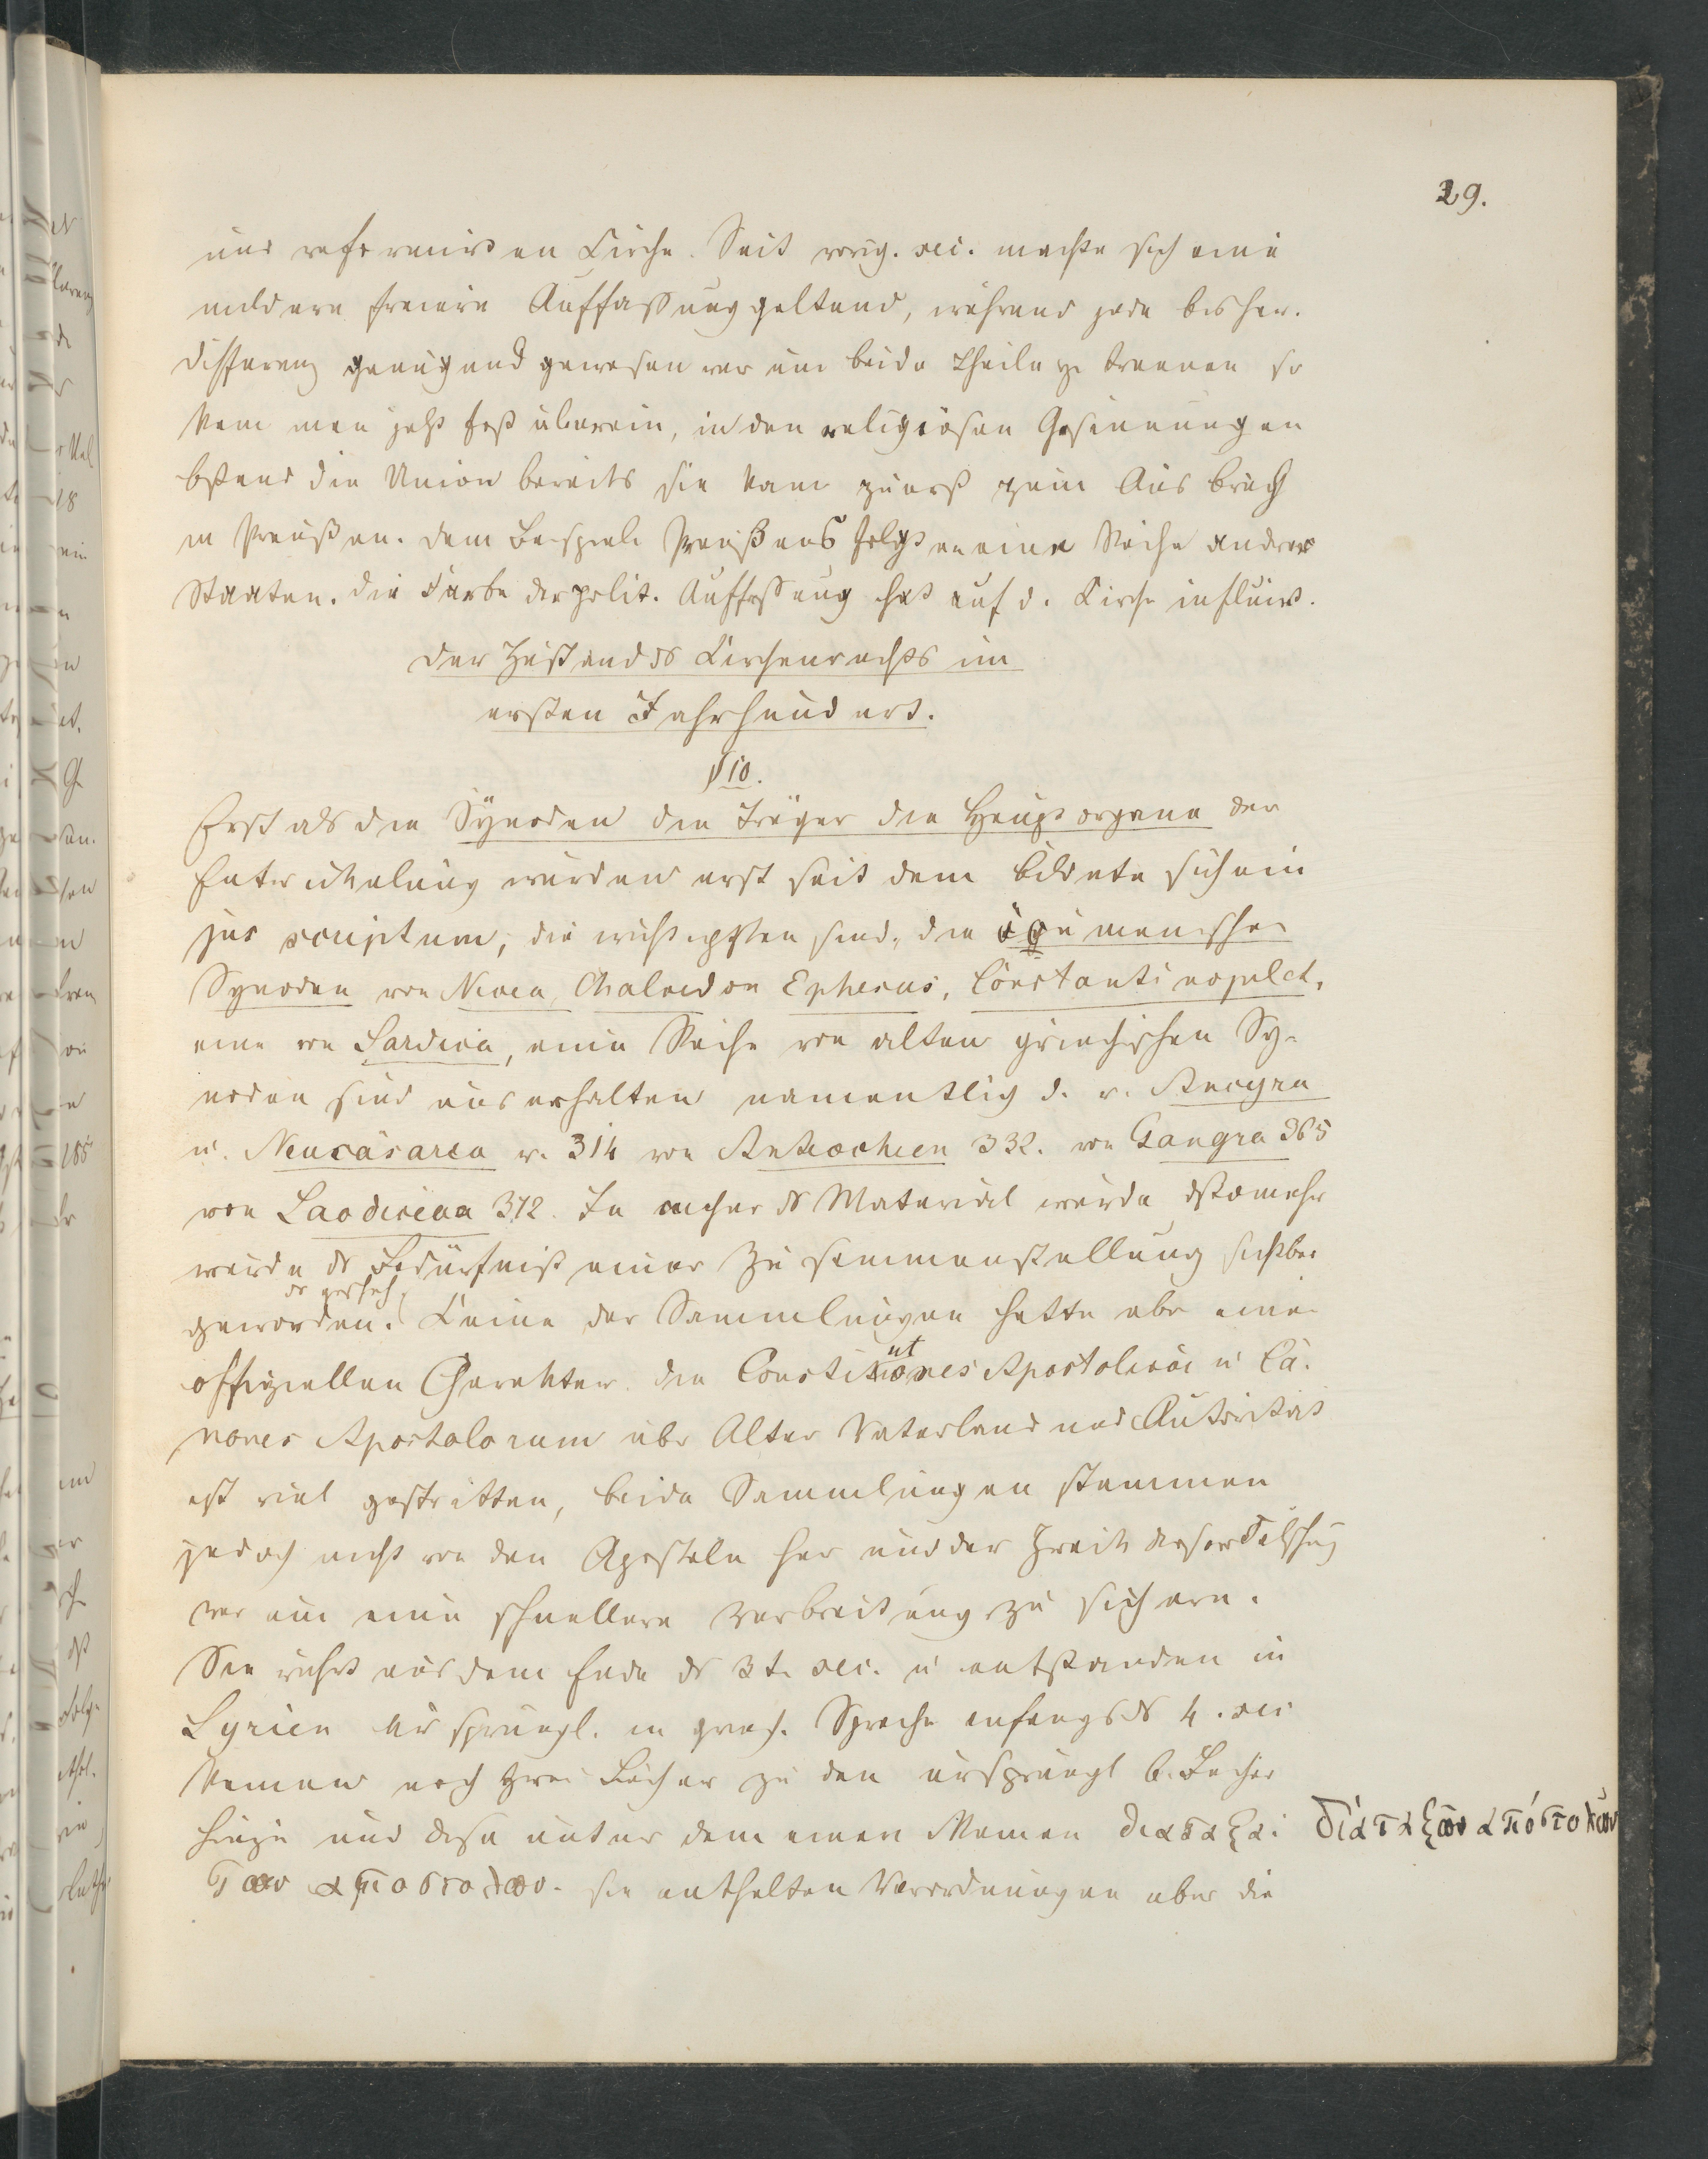 29.
und reformirten Kirche. Seit vorig. sec. machte sich eine
mildere freiere Auffassung geltend, während jede bisher.
Differenz genügend gewesen war um beide Theile zu trennen so
kam man jetzt fast überein, in den religiösen Gesinnungen
bstand die Union bereits sie kam zuerst zum Ausbruch
in Preußen. Dem Beispiele Preußens folgten eine Reihe andrer
Staaten. Die Farbe der polit. Auffassung hat auf d. Kirche influirt.
Der Zustand ds Kirchenrechts im
ersten Jahrhundert.
§ 10.
Erst als die Synoden die Träger die Hauptorgane der
Entwickelung wurden erst seit dem bildete sich ein
jus scriptum, die wichtigsten sind, die öcumenischen
Synoden von Nicea, Chalcedon Ephesus, Constantinopel et.
eine von Sardica, eine Reihe von alten griechischen Sy-
noden sind uns erhalten namentlich d. v. Ancyra
u. Neucäsarea v. 314 von Antiochien 332. von Gangra 365
von Laodicaea 372. Je mehr ds Material wurde dstomehr
wurde ds Bedürfniß einer Zusammenstellung sichtbar
ds geschah,
geworden. Keine der Sammlungen hatte abr einen
offiziellen Charakter. Die Constitutiones Apostolicae u Ca-
nones Apostolorum übr Alter Vaterland und Autorität
ist viel gestritten, beide Sammlungen stammen
jedoch nicht von den Aposteln her und der Zweck dieser Fälschung
war um eine schnellere Verbreitung zu sichern.
Sie rührt aus dem Ende ds 3t. sec. u entstanden in
Syrien ursprüngl. in griech. Sprache anfangs ds 4. sec
kamen noch zwei Bücher zu den ursprüngl 6. Bücher
hinzu und diese unter dem einen Namen διαταξαι διαταξων αποστολων
των αποστολων. sie enthalten Verordnungen über die